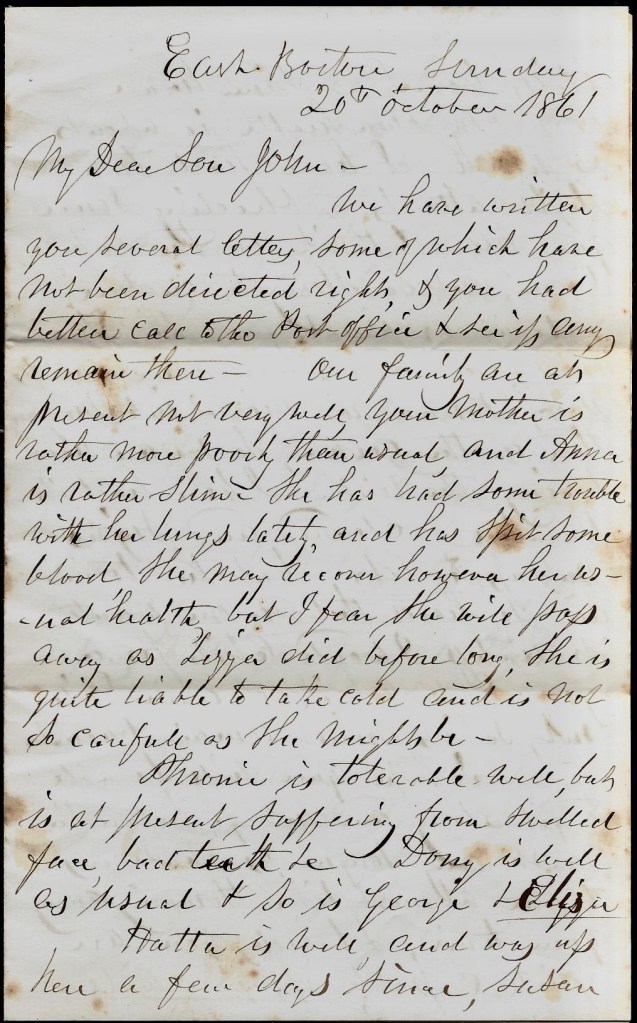 East Boston Sunday
20th October 1861
My Dear Son John –
We have written
you several letters, some of which have
not been directed right, & you had
better call to the Post office & see if any
remain there – Our family are at
present not very well, your Mother is
rather more poorly than usual, and Anna
is rather slim – She has had some trouble
with her lungs lately, and has spit some
blood, She may recover however her us-
-ual health, but I fear She will pass
away as Lizza did before long, She is
quite liable to take cold and is not
so carefull as She might be –
Phronie is tolerable well, but
is at present suffering from swelled
face, bad teeth &c Dorry is well
as usual & so is George &
Hatta is well, and was up
here a few days since, Susan